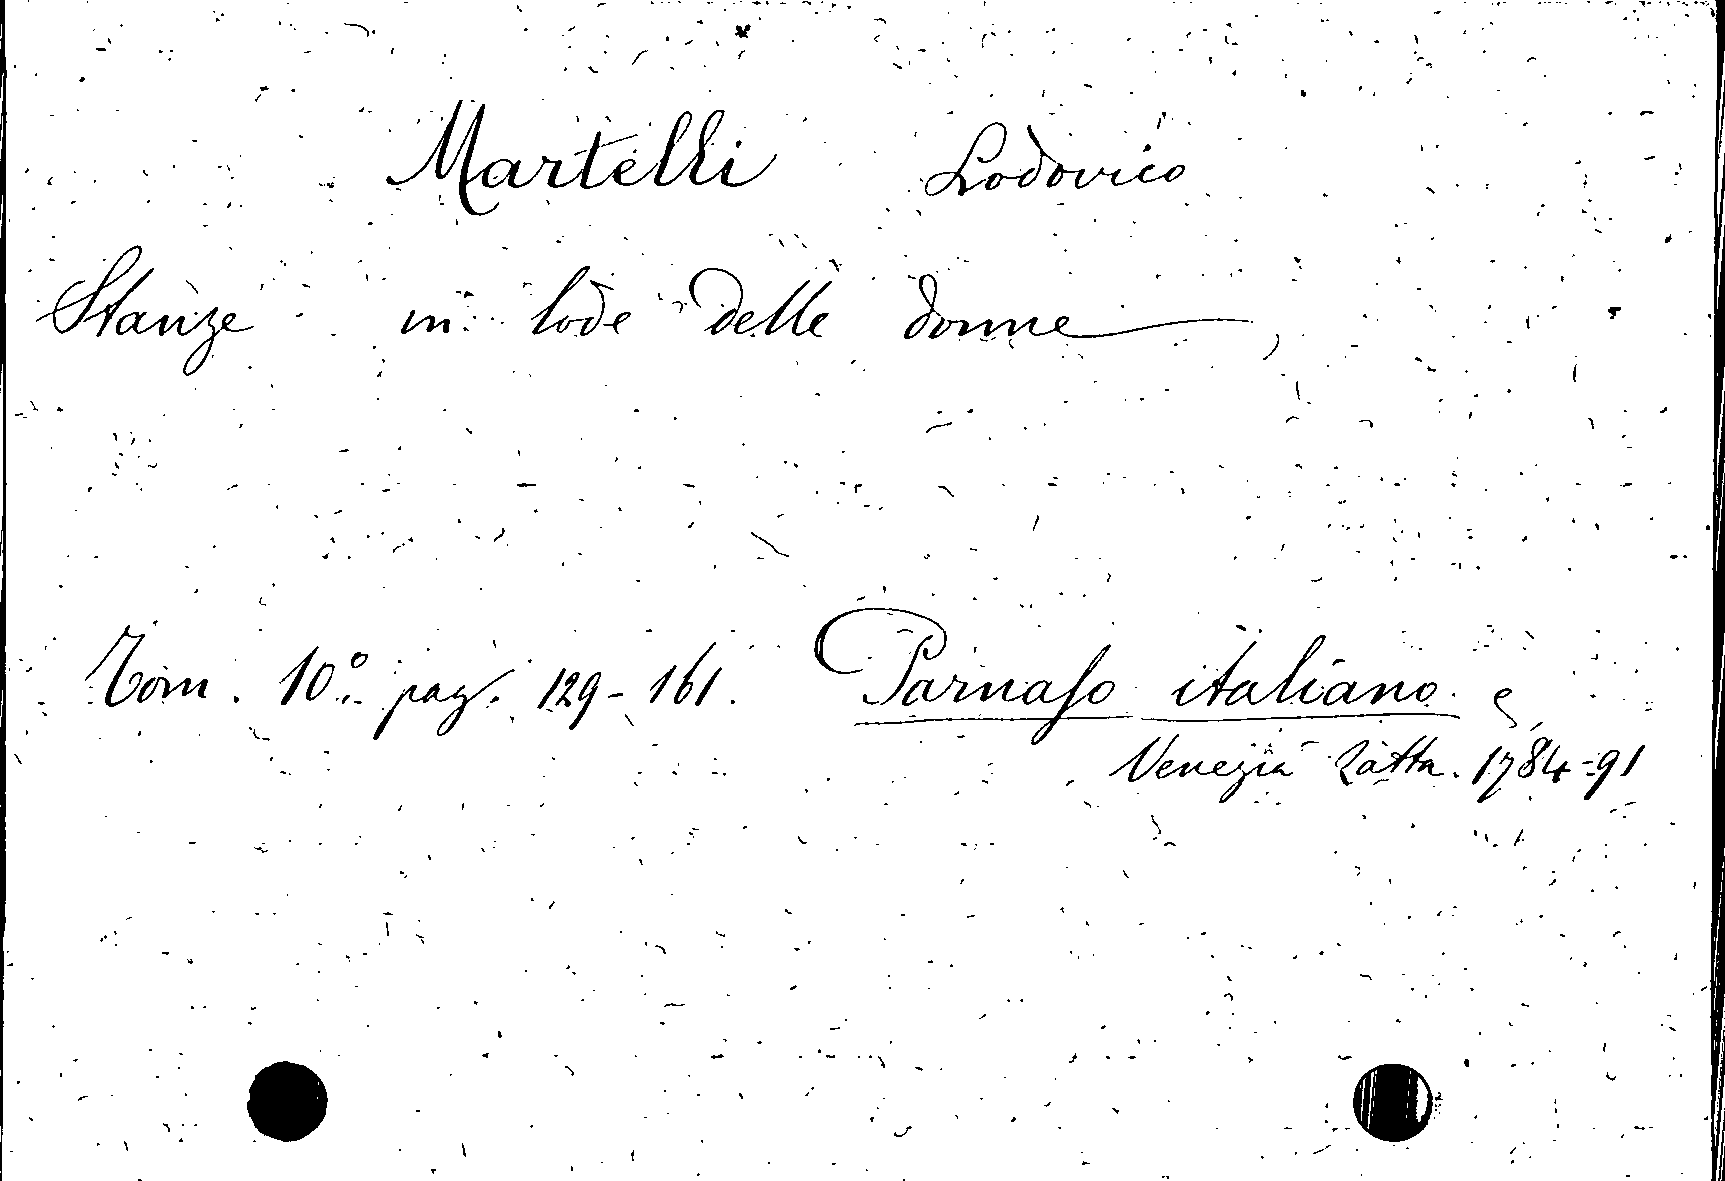 Martelli Lodovico
Stanze in lode delle donne,
Tom. 10º pag. 129-161. Parnaso italiano
Venezia Zatta. 1784-91